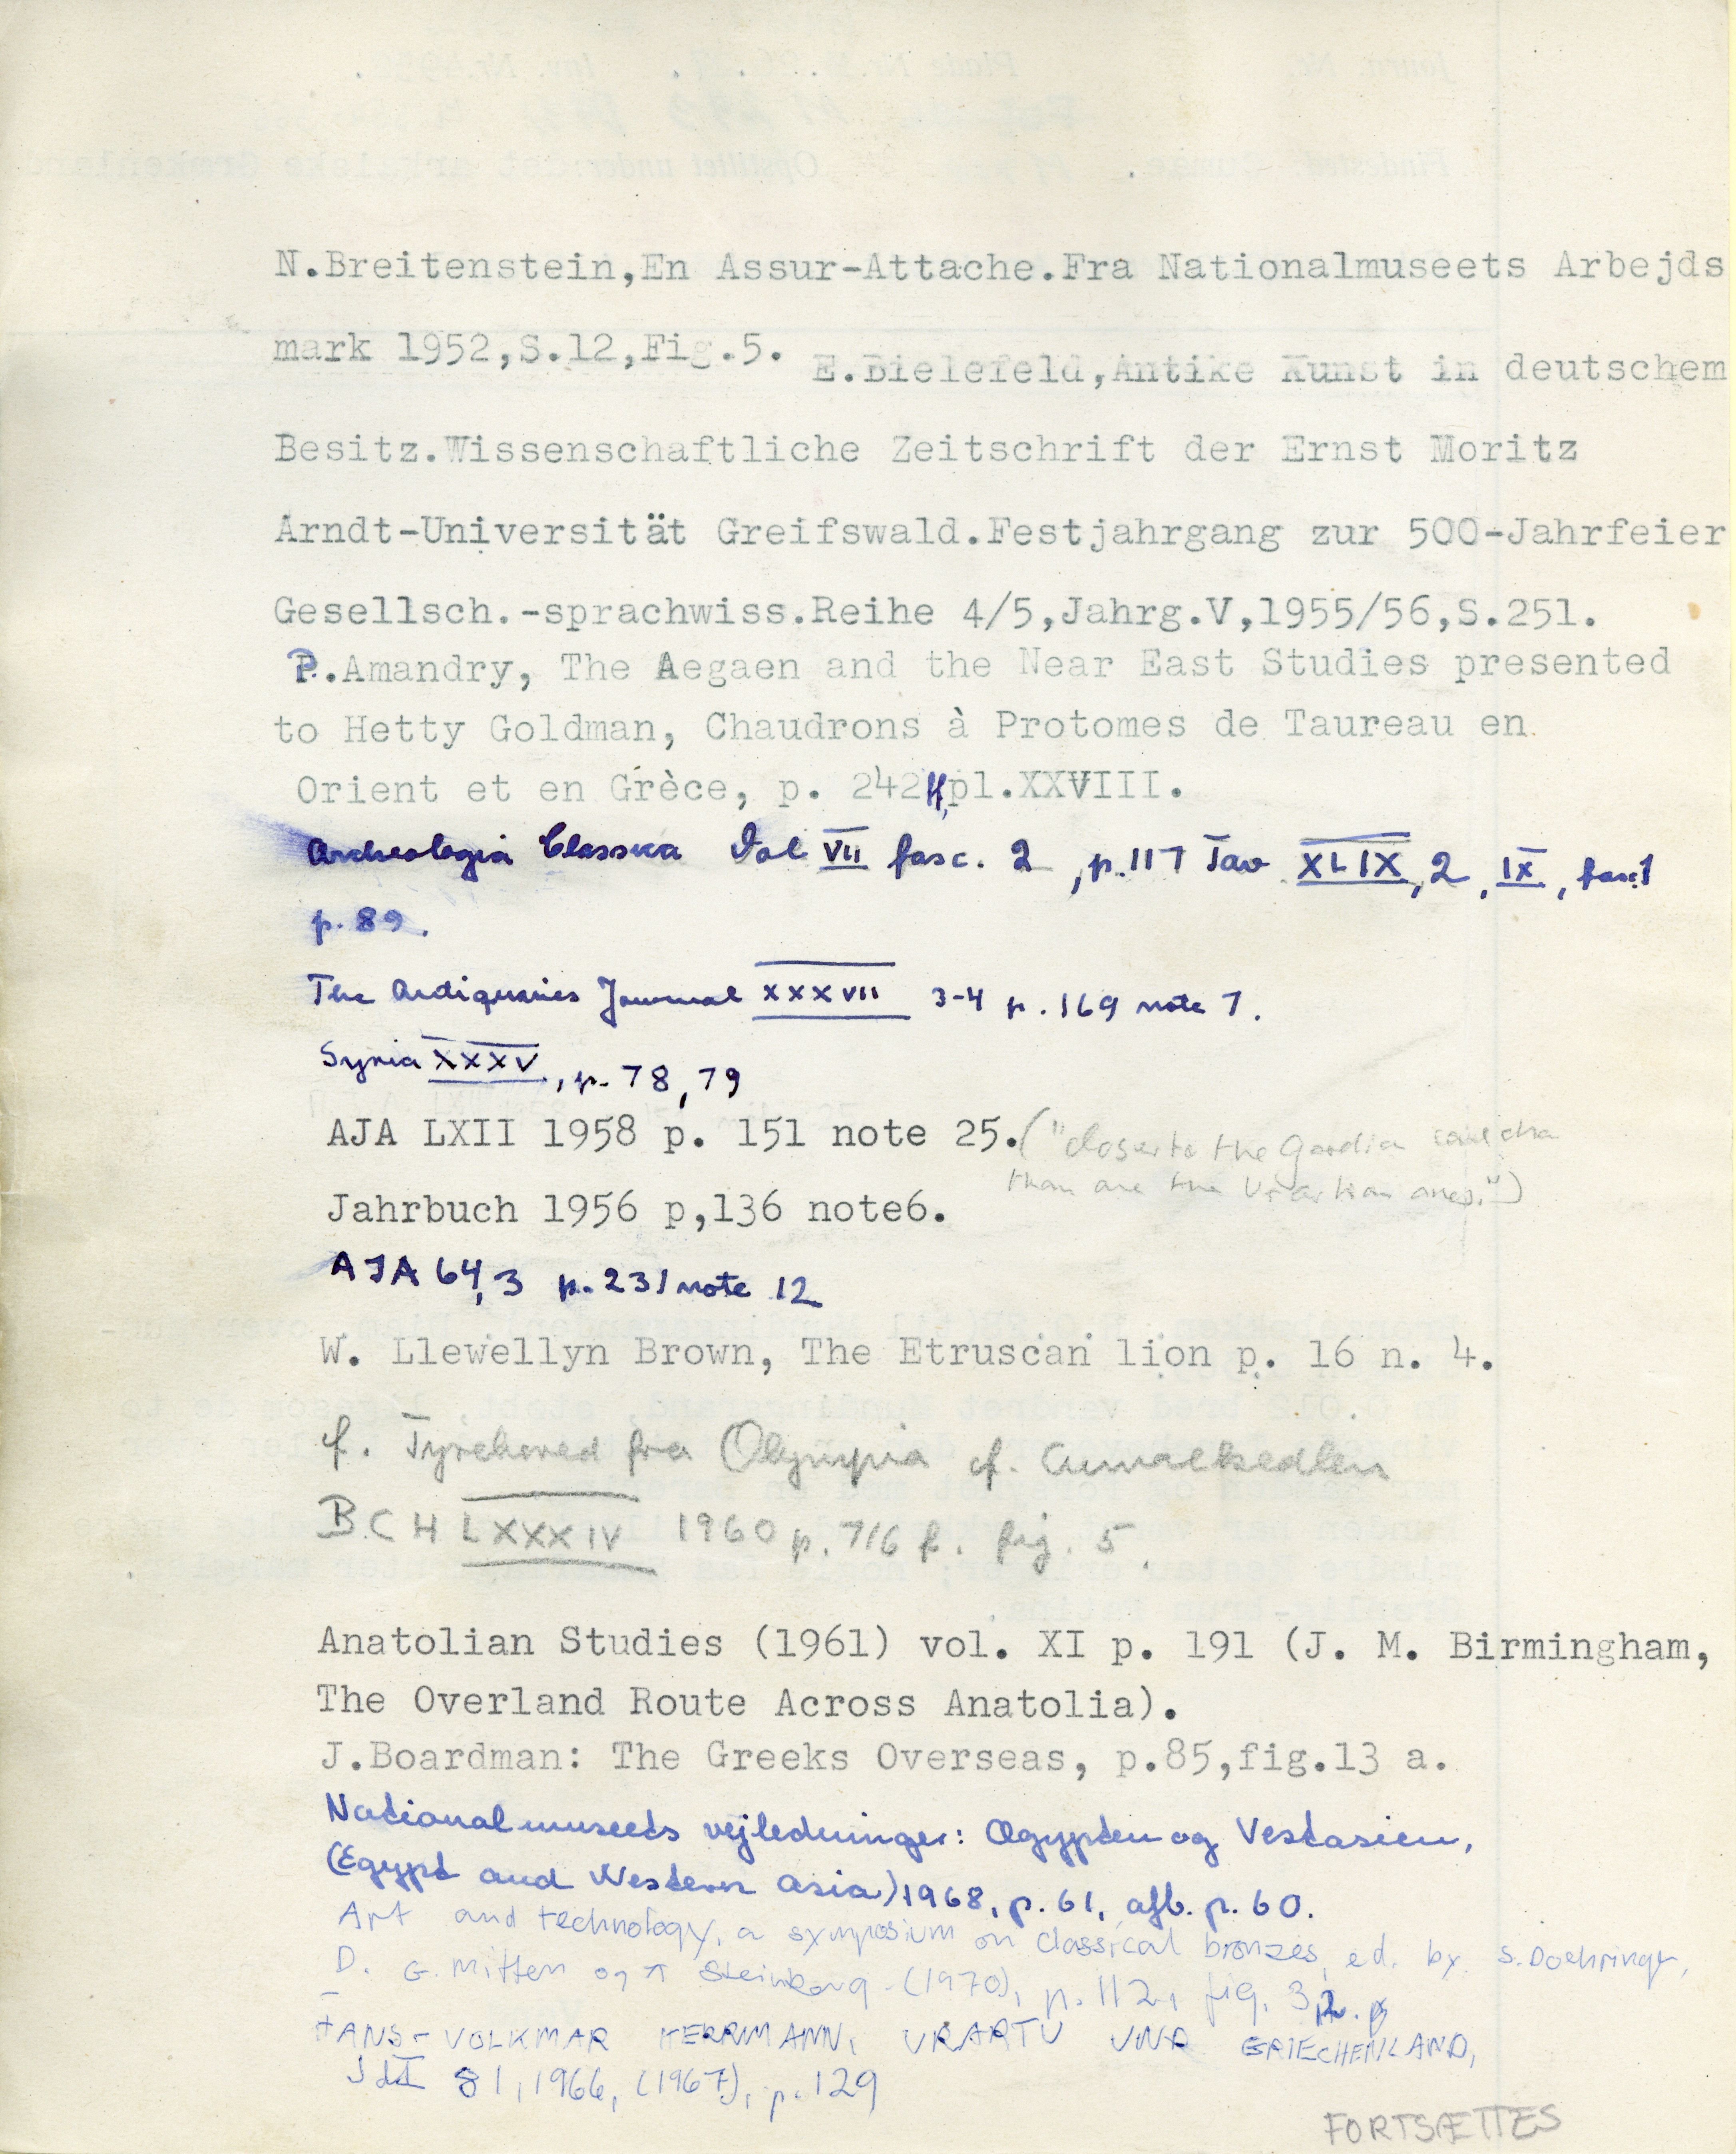 N.Breitenstein,En Assur-Attache.Fra Nationalmuseets Arbejds
mark 1952,S.12,Fig.5. E.Bielefeld,Antike Kunst in deutschem
Besitz.Wissenschaftliche Zeitschrift der Ernst Moritz
Arndt-Universität Greifswald.Festjahrgang zur 500-Jahrfeier
Gesellsch.-sprachwiss.Reihe 4/5,Jahrg.V,1955/56,S.251.
P.Amandry, The Aegaen and the Near East Studies presented
to Hetty Goldman, Chaudrons à Protomes de Taureau en
Orient et en Grèce, p. 242 pl.XXVIII.
Archeologia Classica Vol VII fasc. 2, p.117 Tav XLIX, 2, IX, fasc1
p. 89.
The Antiquaries Journal XXXVII 3-4 p. 169 note 7.
Syria XXXV, p. 78, 79
AJA LXII 1958 p. 151 note 25. ("closer to the Gordion
than are the Urartian ones.")
Jahrbuch 1956 p,136 note6.
AJA 64,3 p. 231 note 12
W. Llewellyn Brown, The Etruscan lion p. 16 n. 4.
cf. Tyrehoved fra Olympia cf.
B.C H LXXXIV 1960 p. 716 f. fig. 5.
Anatolian Studies (1961) vol. XI p. 191 (J. M. Birmingham,
The Overland Route Across Anatolia).
J.Boardman: The Greeks Overseas, p.85,fig.13 a.
Nationalmuseets vejledninger: Ægypten og Vestasien,
(Egypt and Western Asia) 1968, p. 61, afb. p. 60.
Art and technology, a symposium on classical bronzes, ed. by S. Doehringer,
D. G. Mitten og A Steinberg (1970), p. 112, fig. 3
HANS-VOLKMAR HERRMANN, URARTU UND GRIECHENLAND,
JdI 81, 1966, (1967), p. 129
FORTSÆTTES